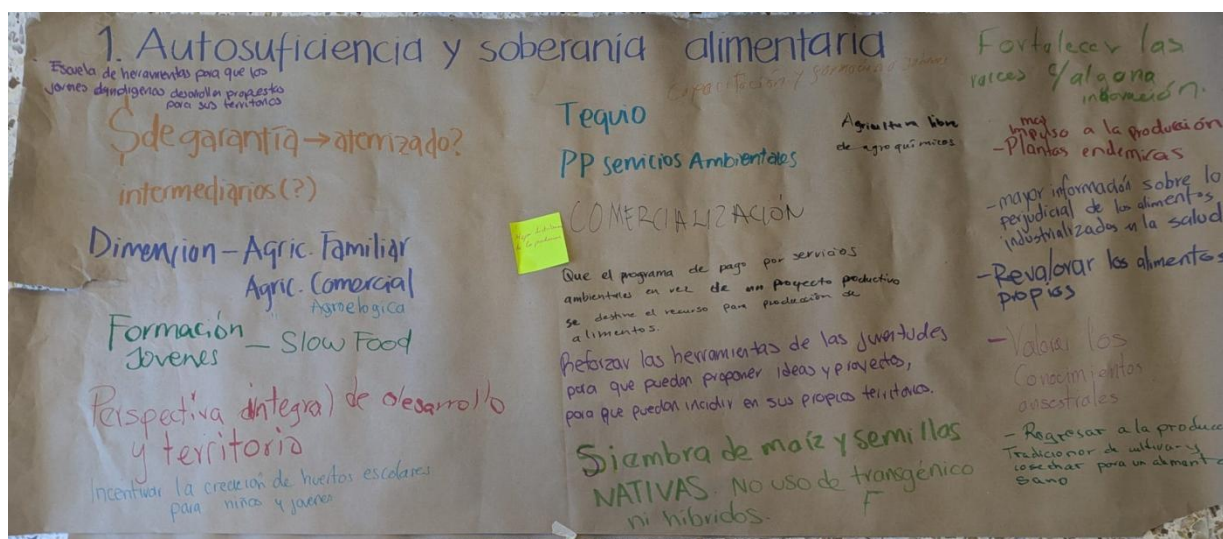 1. Autosuficiencia y soberanía alimentaria
Escuela de herramientas para que los
jovenes dandígenas desarrollen propuestas
para sus territorios
$ de garantía → atomizado?
intermediarios (?)
Dimension - Agric. Familiar
Agric. Comercial
Agroelogica
Formación
Jovenes - Slow Food
Perspectiva integral de desarrollo
y territorio
Incentivar la creación de huertos escolares
para niños y jovenes
Capacitación y
Tequio
PP servicios Ambientales
Agricultura libre
de agroquímicos
COMERCIALIZACIÓN
Que el programa de pago por servicios
ambientales en vez de un proyecto productivo
se destine el recurso para producción de
alimentos.
Reforzar las herramientas de las juventudes
para que puedan proponer ideas y proyectos,
para que puedan incidir en sus propios territorios.
Siembra de maíz y semillas
NATIVAS. No uso de transgénico
ni híbridos. F
Fortalecer las
raíces c/alguna
información.
mas
impulso a la producción
- Plantas endemicas
- mayor información sobre lo
perjudicial de los alimentos
industrializados a la salud
- Revalorar los alimentos
propios
- Valorar los
Conocimientos
ansestrales
- Regresar a la produc
Tradicionor de cultivar y
cosechar para un aliment
sano